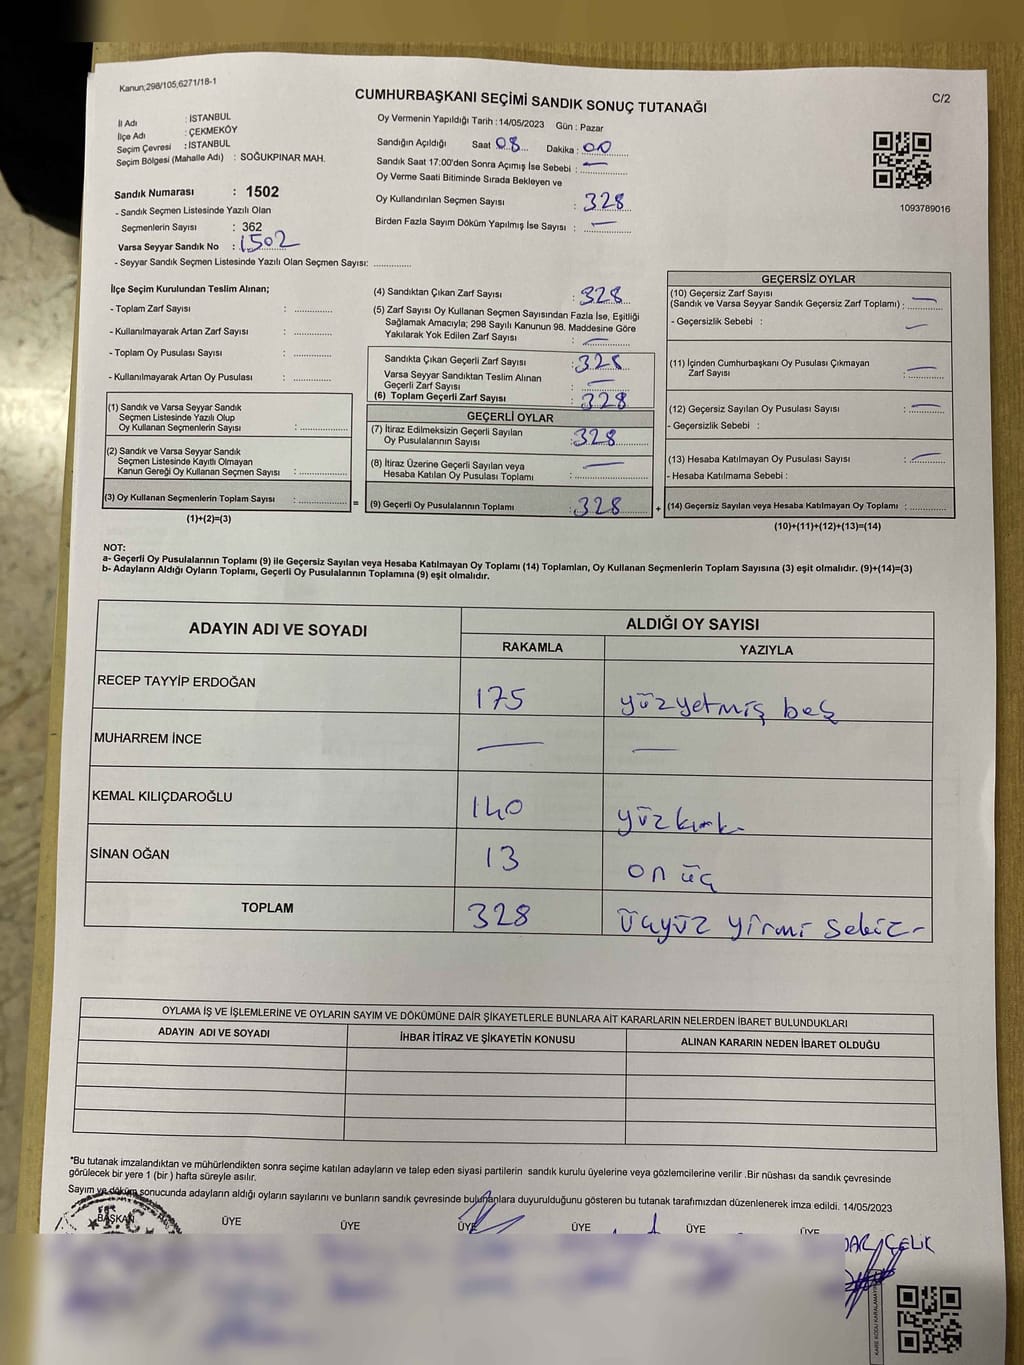 Kanun;298/105;6271/18-1
CUMHURBAŞKANI SEÇİMİ SANDIK SONUÇ TUTANAĞI
C/2
İl Adı : İSTANBUL
İlçe Adı : ÇEKMEKÖY
Seçim Çevresi : İSTANBUL
Seçim Bölgesi (Mahalle Adı) : SOĞUKPINAR MAH.
Sandık Numarası : 1502
- Sandık Seçmen Listesinde Yazılı Olan
Seçmenlerin Sayısı : 362
Varsa Seyyar Sandık No : 1502
- Seyyar Sandık Seçmen Listesinde Yazılı Olan Seçmen Sayısı: ..............
Oy Vermenin Yapıldığı Tarih : 14/05/2023 Gün : Pazar
Sandığın Açıldığı Saat 08 Dakika : 00
Sandık Saat 17:00'den Sonra Açımış İse Sebebi : —
Oy Verme Saati Bitiminde Sırada Bekleyen ve
Oy Kullandırılan Seçmen Sayısı : 328
Birden Fazla Sayım Döküm Yapılmış İse Sayısı : —
1093789016
İlçe Seçim Kurulundan Teslim Alınan;
- Toplam Zarf Sayısı : ..............
- Kullanılmayarak Artan Zarf Sayısı : ..............
- Toplam Oy Pusulası Sayısı : ..............
- Kullanılmayarak Artan Oy Pusulası : ..............
(1) Sandık ve Varsa Seyyar Sandık
Seçmen Listesinde Yazılı Olup
Oy Kullanan Seçmenlerin Sayısı : ..............
(2) Sandık ve Varsa Seyyar Sandık
Seçmen Listesinde Kayıtlı Olmayan
Kanun Gereği Oy Kullanan Seçmen Sayısı : ..............
(3) Oy Kullanan Seçmenlerin Toplam Sayısı : .............. =
(1)+(2)=(3)
(4) Sandıktan Çıkan Zarf Sayısı : 328
(5) Zarf Sayısı Oy Kullanan Seçmen Sayısından Fazla İse, Eşitliği
Sağlamak Amacıyla; 298 Sayılı Kanunun 98. Maddesine Göre
Yakılarak Yok Edilen Zarf Sayısı : —
Sandıkta Çıkan Geçerli Zarf Sayısı : 328
Varsa Seyyar Sandıktan Teslim Alınan
Geçerli Zarf Sayısı : —
(6) Toplam Geçerli Zarf Sayısı : 328
GEÇERLİ OYLAR
(7) İtiraz Edilmeksizin Geçerli Sayılan
Oy Pusulalarının Sayısı : 328
(8) İtiraz Üzerine Geçerli Sayılan veya
Hesaba Katılan Oy Pusulası Toplamı : —
(9) Geçerli Oy Pusulalarının Toplamı : 328 +
GEÇERSİZ OYLAR
(10) Geçersiz Zarf Sayısı
(Sandık ve Varsa Seyyar Sandık Geçersiz Zarf Toplamı) : —
- Geçersizlik Sebebi : —
(11) İçinden Cumhurbaşkanı Oy Pusulası Çıkmayan
Zarf Sayısı : —
(12) Geçersiz Sayılan Oy Pusulası Sayısı : —
- Geçersizlik Sebebi :
(13) Hesaba Katılmayan Oy Pusulası Sayısı : —
- Hesaba Katılmama Sebebi :
(14) Geçersiz Sayılan veya Hesaba Katılmayan Oy Toplamı : ..............
(10)+(11)+(12)+(13)=(14)
NOT:
a- Geçerli Oy Pusulalarının Toplamı (9) ile Geçersiz Sayılan veya Hesaba Katılmayan Oy Toplamı (14) Toplamları, Oy Kullanan Seçmenlerin Toplam Sayısına (3) eşit olmalıdır. (9)+(14)=(3)
b- Adayların Aldığı Oyların Toplamı, Geçerli Oy Pusulalarının Toplamına (9) eşit olmalıdır.
ADAYIN ADI VE SOYADI ALDIĞI OY SAYISI
RAKAMLA YAZIYLA
RECEP TAYYİP ERDOĞAN 175 yüzyetmiş beş
MUHARREM İNCE — —
KEMAL KILIÇDAROĞLU 140 yüzkırk
SİNAN OĞAN 13 on üç
TOPLAM 328 üçyüz yirmi sekiz
OYLAMA İŞ VE İŞLEMLERİNE VE OYLARIN SAYIM VE DÖKÜMÜNE DAİR ŞİKAYETLERLE BUNLARA AİT KARARLARIN NELERDEN İBARET BULUNDUKLARI
ADAYIN ADI VE SOYADI İHBAR İTİRAZ VE ŞİKAYETİN KONUSU ALINAN KARARIN NEDEN İBARET OLDUĞU
*Bu tutanak imzalandıktan ve mühürlendikten sonra seçime katılan adayların ve talep eden siyasi partilerin sandık kurulu üyelerine veya gözlemcilerine verilir .Bir nüshası da sandık çevresinde
görülecek bir yere 1 (bir ) hafta süreyle asılır.
Sayım ve döküm sonucunda adayların aldığı oyların sayılarını ve bunların sandık çevresinde bulunanlara duyurulduğunu gösteren bu tutanak tarafımızdan düzenlenerek imza edildi. 14/05/2023
BAŞKAN ÜYE ÜYE ÜYE ÜYE ÜYE ÜYE
T.C.
ÇELİK